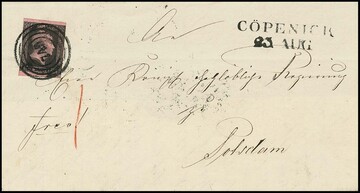 CÖPENICK
23 AUG
An
Eine Königl. hochlöbliche Regierung
zu
frei
Potsdam